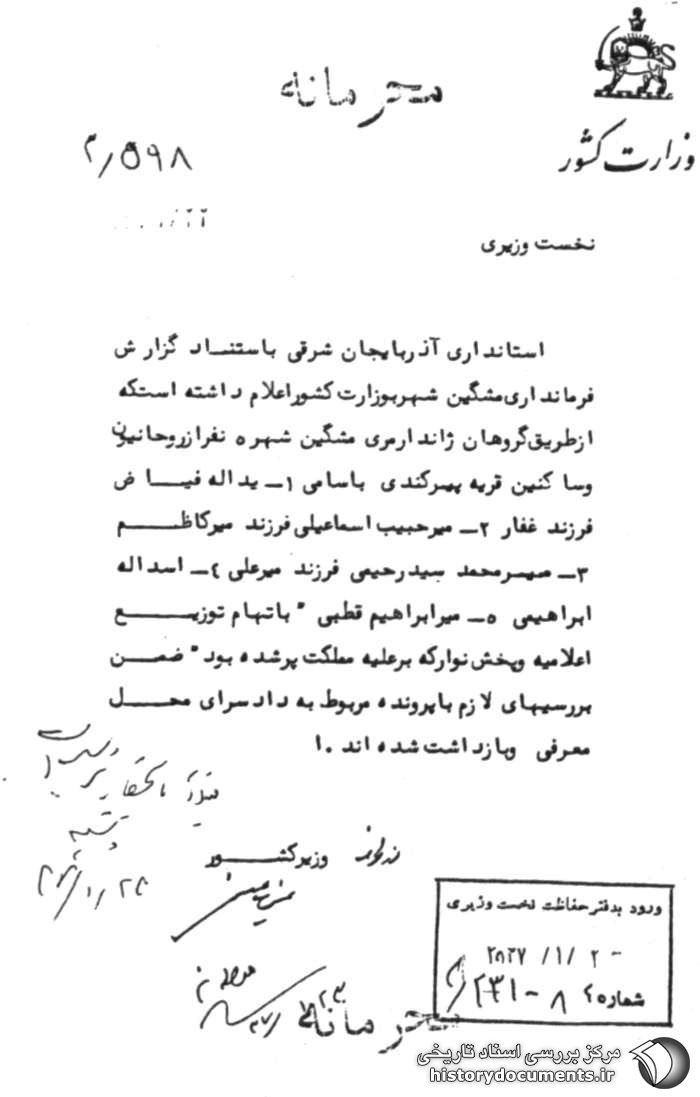 محرمانه
وزارت کشور
۲/۵۹۸
نخست وزیری
استانداری آذربایجان شرقی باستناد گزارش
فرمانداری مشگین شهر بوزارت کشور اعلام داشته استکه
ازطریق گروهان ژاندارمری مشگین شهر ۵ نفر از روحانیون
وساکنین قریه پیرکندی باسامی ۱ـ یداله فیاض
فرزند غفار ۲ـ میرحبیب اسماعیلی فرزند میرکاظم
۳ـ میرمحمد سیدرحیمی فرزند میرعلی ٤ـ اسداله
ابراهیمی ۵ـ میرابراهیم قطبی " باتهام توزیع
اعلامیه وپخش نوارکه برعلیه مملکت پرشده بود " ضمن
بررسیهای لازم باپرونده مربوط به دادسرای محل
معرفی وبازداشت شده اند .۱
وزیر کشور
ورود بدفتر حفاظت نخست وزیری
شماره
محرمانه
مرکز بررسی اسناد تاریخی
historydocuments.ir